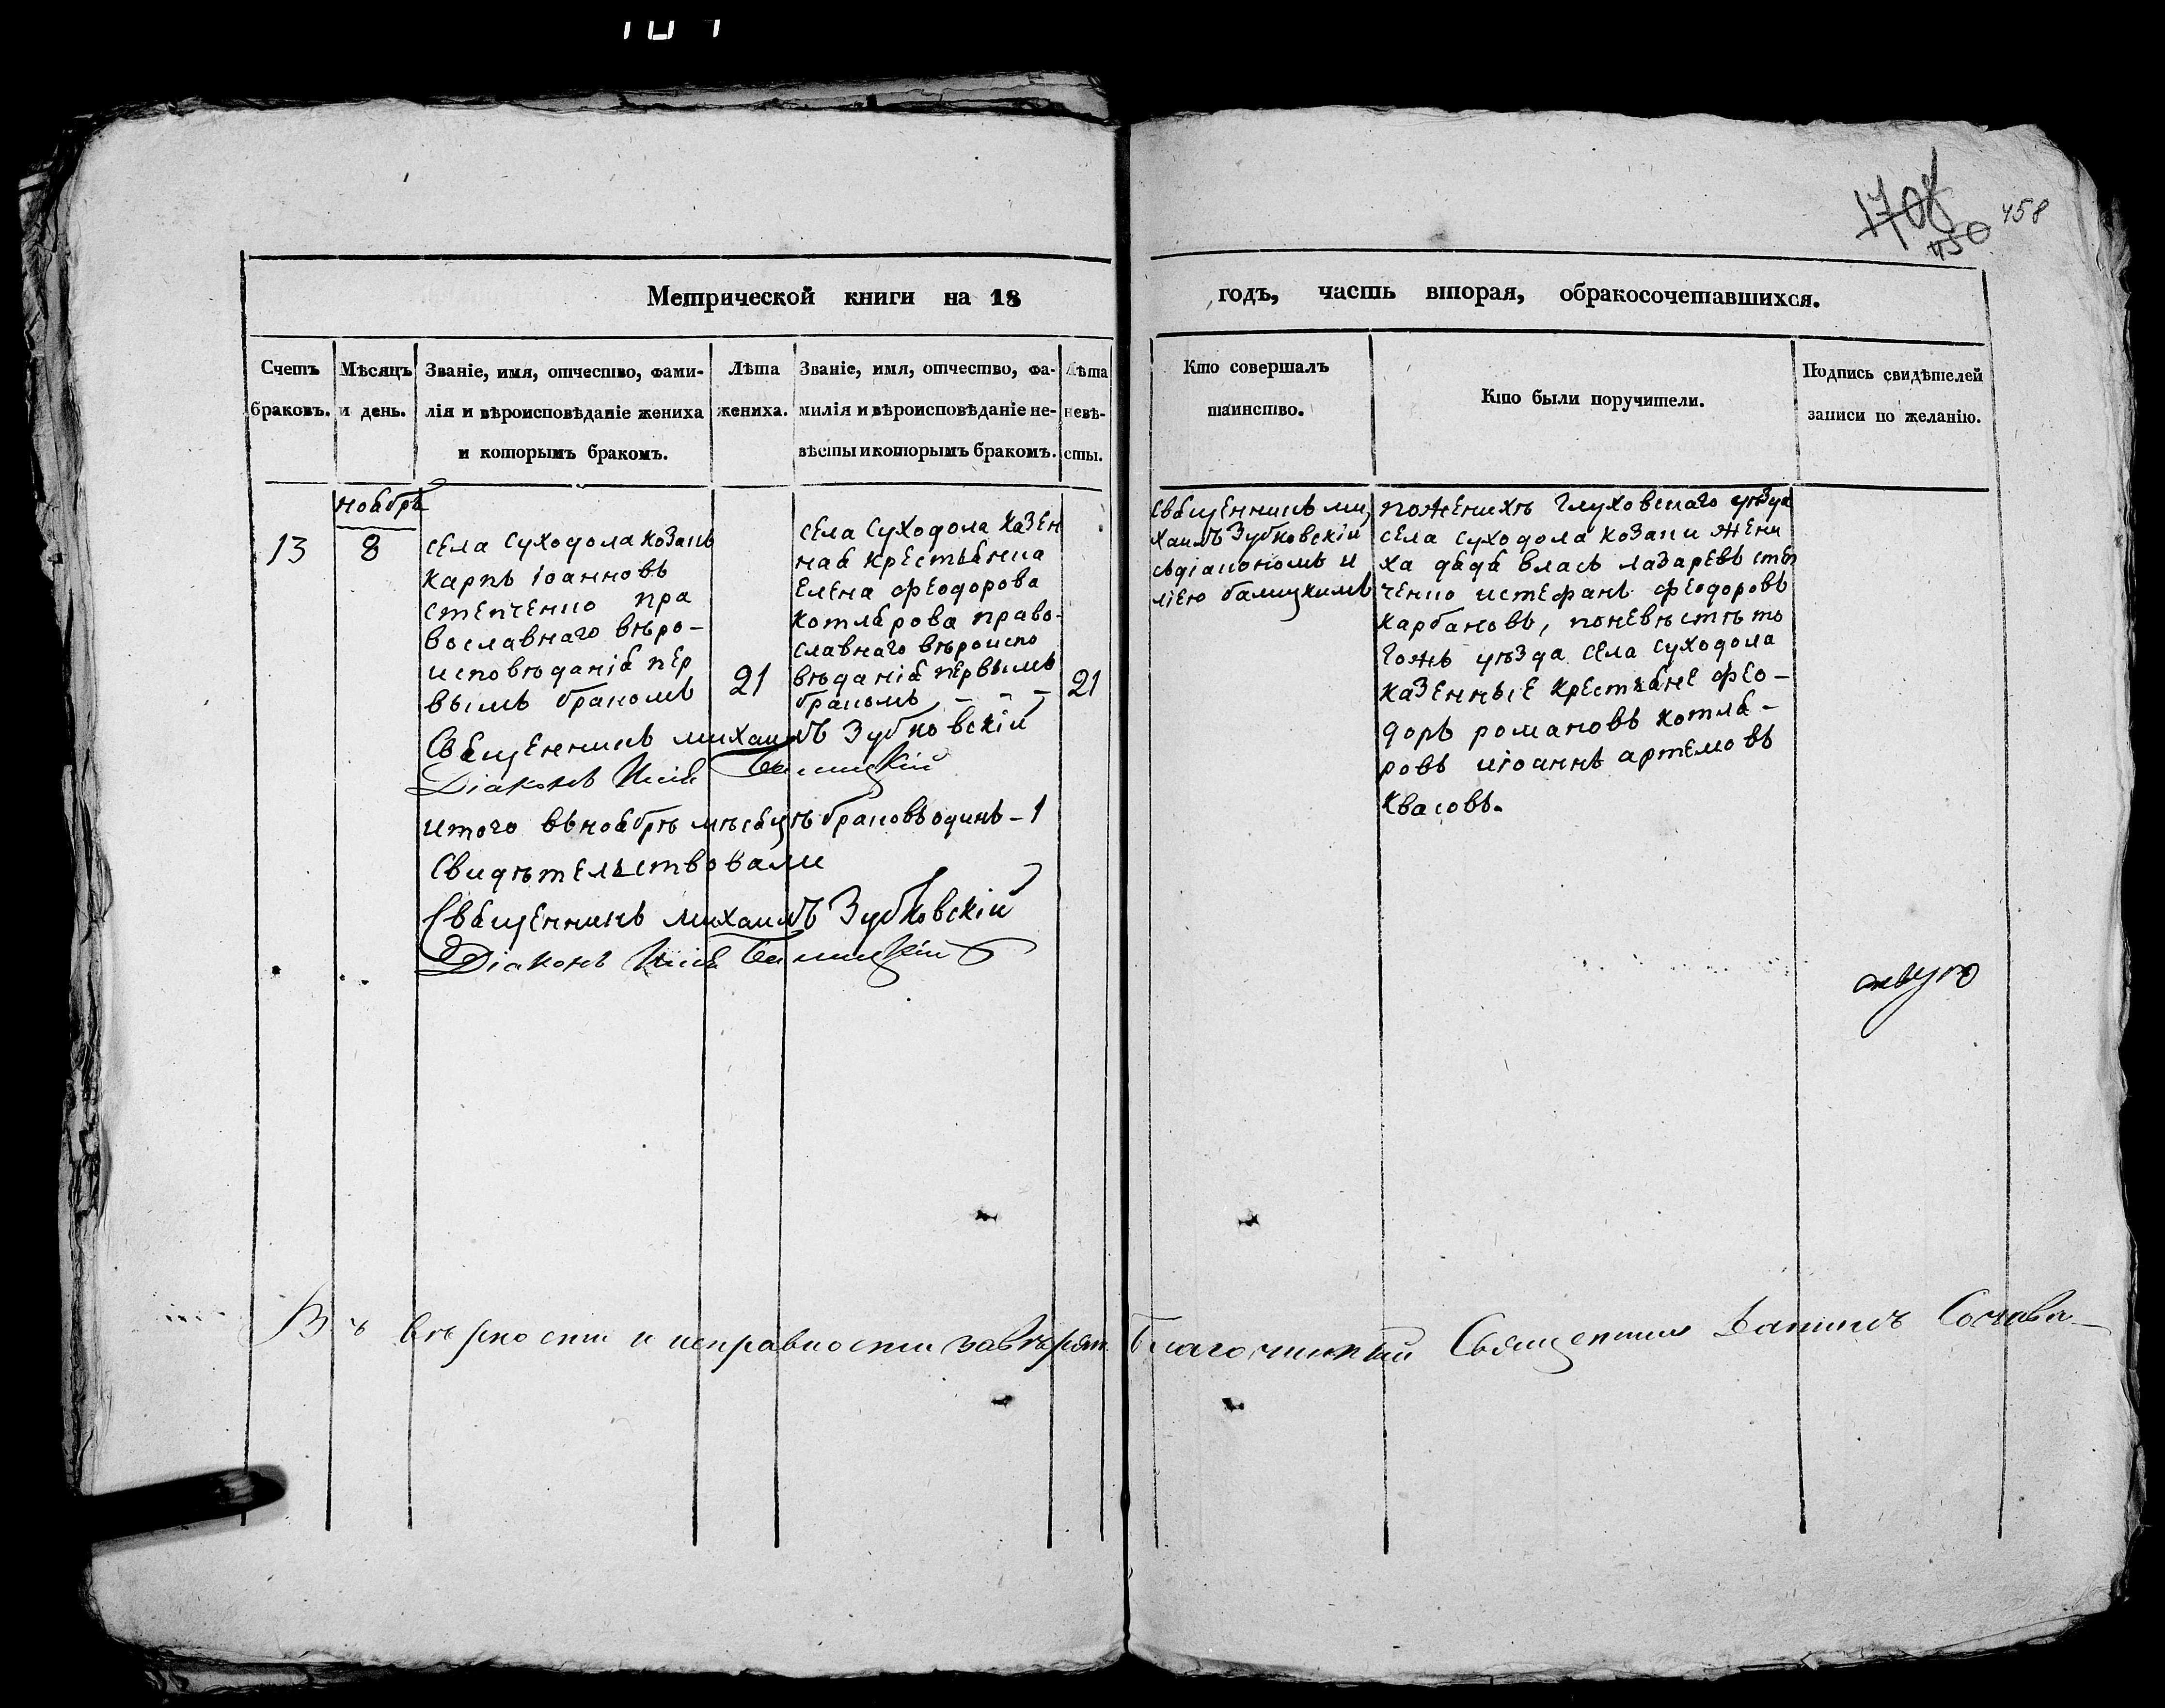 1708
450
458
Метрической книги на 18
годъ, часть вторая, обракосочетавшихся.
Счетъ браковъ.
Мѣсяцъ и день.
Званіе, имя, отчество, фами-
лія и вѣроисповѣданіе жениха
и которымъ бракомъ.
Лѣта
жениха.
Званіе, имя, отчество, фа-
милія и вѣроисповѣданіе не-
вѣсты и которымъ бракомъ.
Лѣта
невѣ-
сты.
Кто совершалъ
таинство.
Кто были поручители.
Подпись свидѣтелей
записи по желанію.
ноябрь
13
8
села Суходола козакъ
карпъ іоанновъ
степченко пра
вославнаго вѣро-
исповѣданія пер
вымъ бракомъ
21
села Суходола казен
ная крестьянка
Елена феодорова
котлярова право-
славнаго вѣроиспо
вѣданія первымъ
бракомъ - - -
21
священникъ ми
хаилъ Зубковскій
съ діакономъ и
ліею балицкимъ
по женихѣ глуховскаго уѣзда
села суходола козаки жени
ха дядя власъ лазаревъ степ
ченко и стефанъ феодоровъ
карбановъ, по невѣстѣ то
гожъ уѣзда села суходола
казенные крестьяне фео-
доръ романовъ котля-
ровъ и іоаннъ артемовъ
квасовъ.
Священникъ михаилъ Зубковскій
Діаконъ Илія Балицкій
итого въ ноябрѣ мѣсяцѣ браковъ одинъ - 1
Свидѣтельствовали
Священникъ михаилъ Зубковскій
Діаконъ Илія Балицкій
Въ вѣрности и исправности завѣряю Благочинный Священникъ Даниилъ